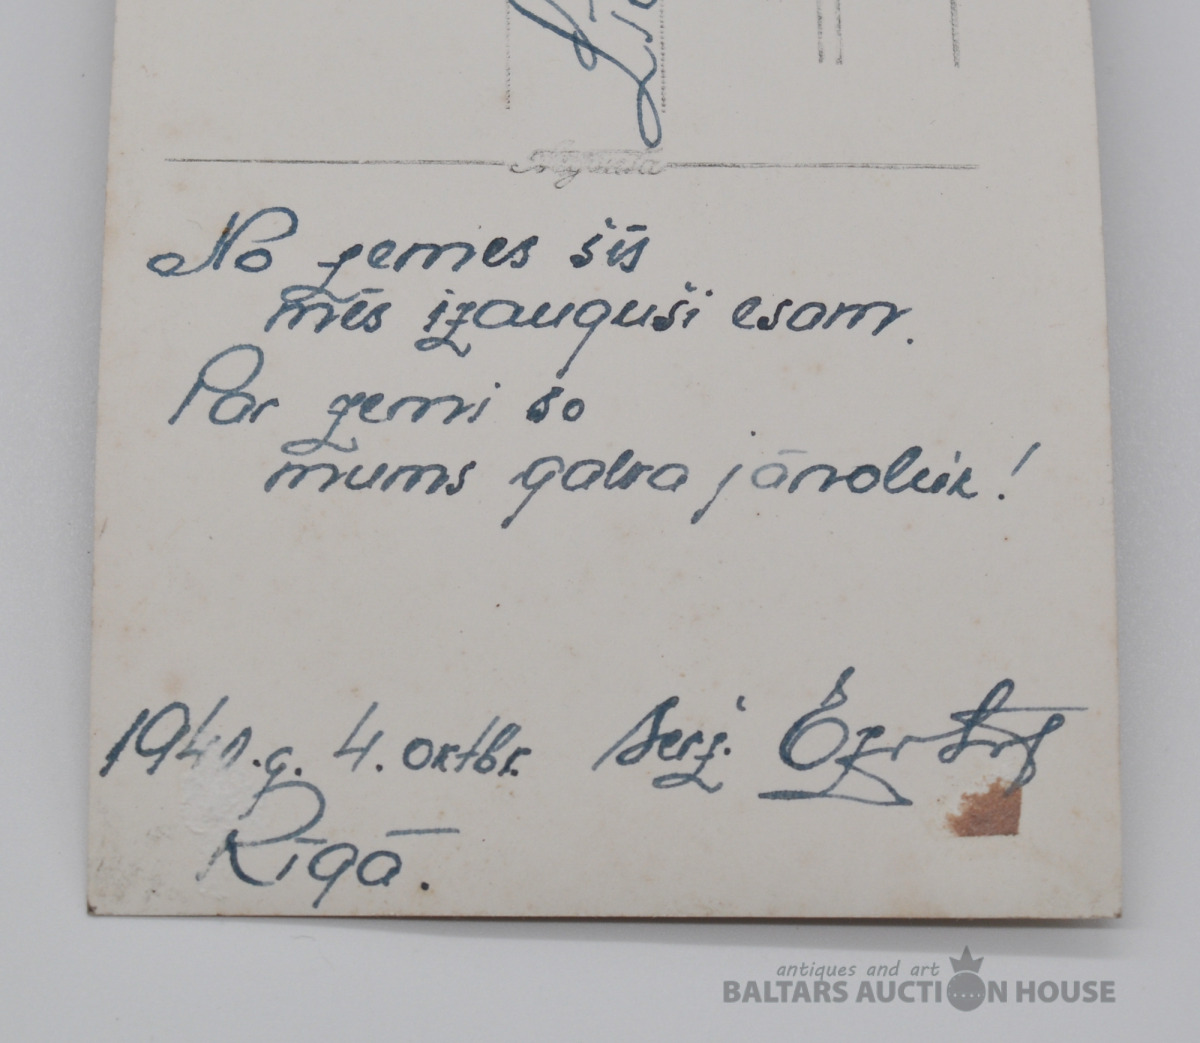 No zemes šīs
mēs izauguši esam.
Par zemi šo
mums galva jānoliek!
1941.g. 4. oktbr. Serž.
Rīgā.
antiques and art
BALTARS AUCTION HOUSE